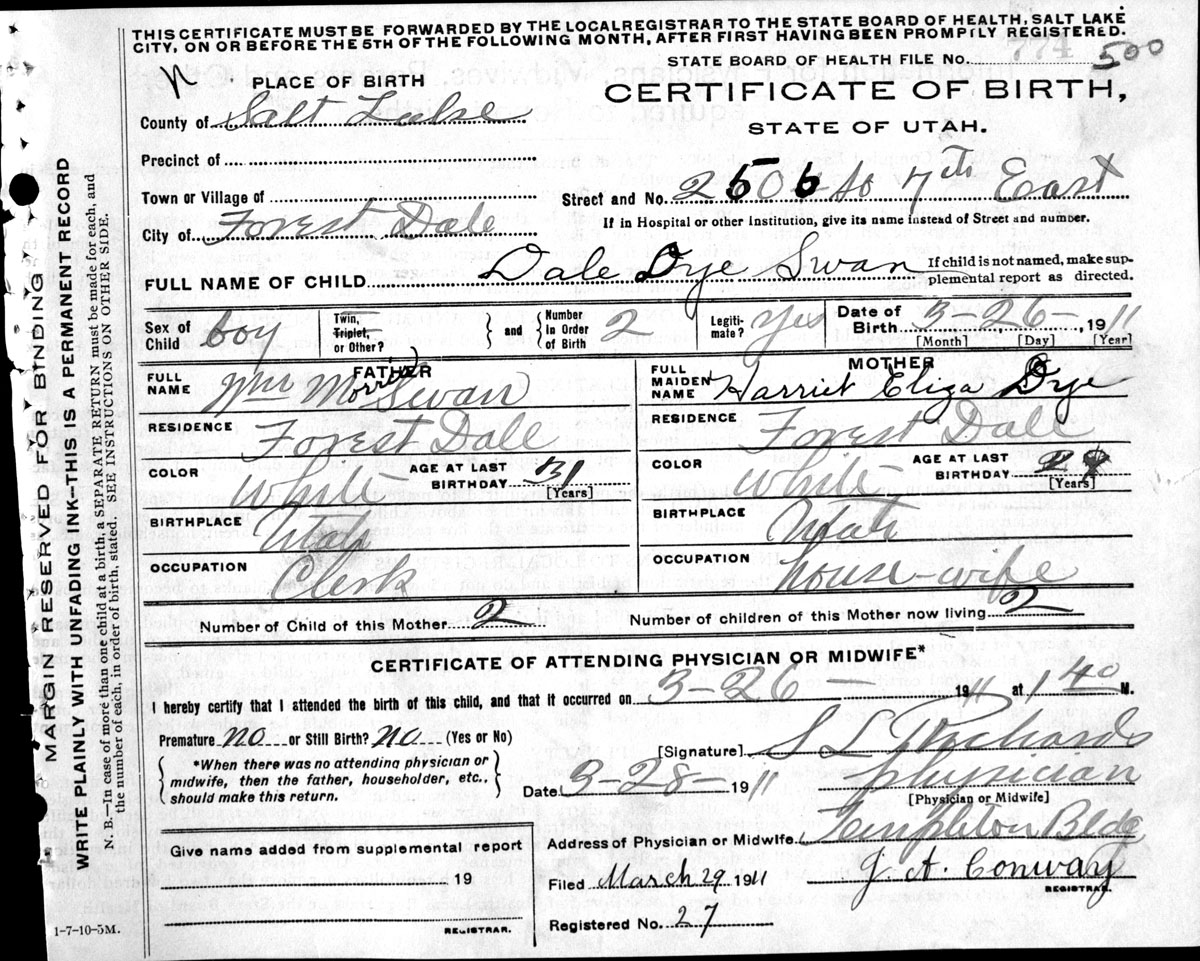 THIS CERTIFICATE MUST BE FORWARDED BY THE LOCAL REGISTRAR TO THE STATE BOARD OF HEALTH, SALT LAKE
CITY, ON OR BEFORE THE 5TH OF THE FOLLOWING MONTH, AFTER FIRST HAVING BEEN PROMPTLY REGISTERED.
774
STATE BOARD OF HEALTH FILE No. 500
N
PLACE OF BIRTH
CERTIFICATE OF BIRTH,
STATE OF UTAH.
County of Salt Lake
Precinct of
Town or Village of
Street and No. 2506 So 7th East
City of Forest Dale
If in Hospital or other Institution, give its name instead of Street and number.
FULL NAME OF CHILD Dale Dye Swan
If child is not named, make sup-
plemental report as directed.
Sex of Child boy
Twin, Triplet, or Other?
and
Number In Order of Birth 2
Legiti-mate? Yes
Date of Birth 3-26-, 1911
[Month] [Day] [Year]
FATHER
FULL NAME Wm Morris Swan
RESIDENCE Forest Dall
COLOR White
AGE AT LAST BIRTHDAY 31
[Years]
BIRTHPLACE Utah
OCCUPATION Clerk
MOTHER
FULL MAIDEN NAME Harriet Eliza Dye
RESIDENCE Forest Dall
COLOR White
AGE AT LAST BIRTHDAY
[Years]
BIRTHPLACE Utah
OCCUPATION house-wife
Number of Child of this Mother 2
Number of children of this Mother now living 2
CERTIFICATE OF ATTENDING PHYSICIAN OR MIDWIFE*
I hereby certify that I attended the birth of this child, and that it occurred on 3-26- 1911 at 1 40 M.
Premature no or Still Birth? no (Yes or No)
*When there was no attending physician or
midwife, then the father, householder, etc.,
should make this return.
[Signature] S L Richards
Date 3-28- 1911
physician
[Physician or Midwife]
Address of Physician or Midwife Templeton Bldg
Give name added from supplemental report
19
REGISTRAR.
Filed March 29 1911
J. A. Conway
REGISTRAR.
Registered No. 27
1-7-10-5M.
MARGIN RESERVED FOR BINDING
WRITE PLAINLY WITH UNFADING INK-THIS IS A PERMANENT RECORD
N. B.—In case of more than one child at a birth, a SEPARATE RETURN must be made for each, and
the number of each, in order of birth, stated. SEE INSTRUCTIONS ON OTHER SIDE.